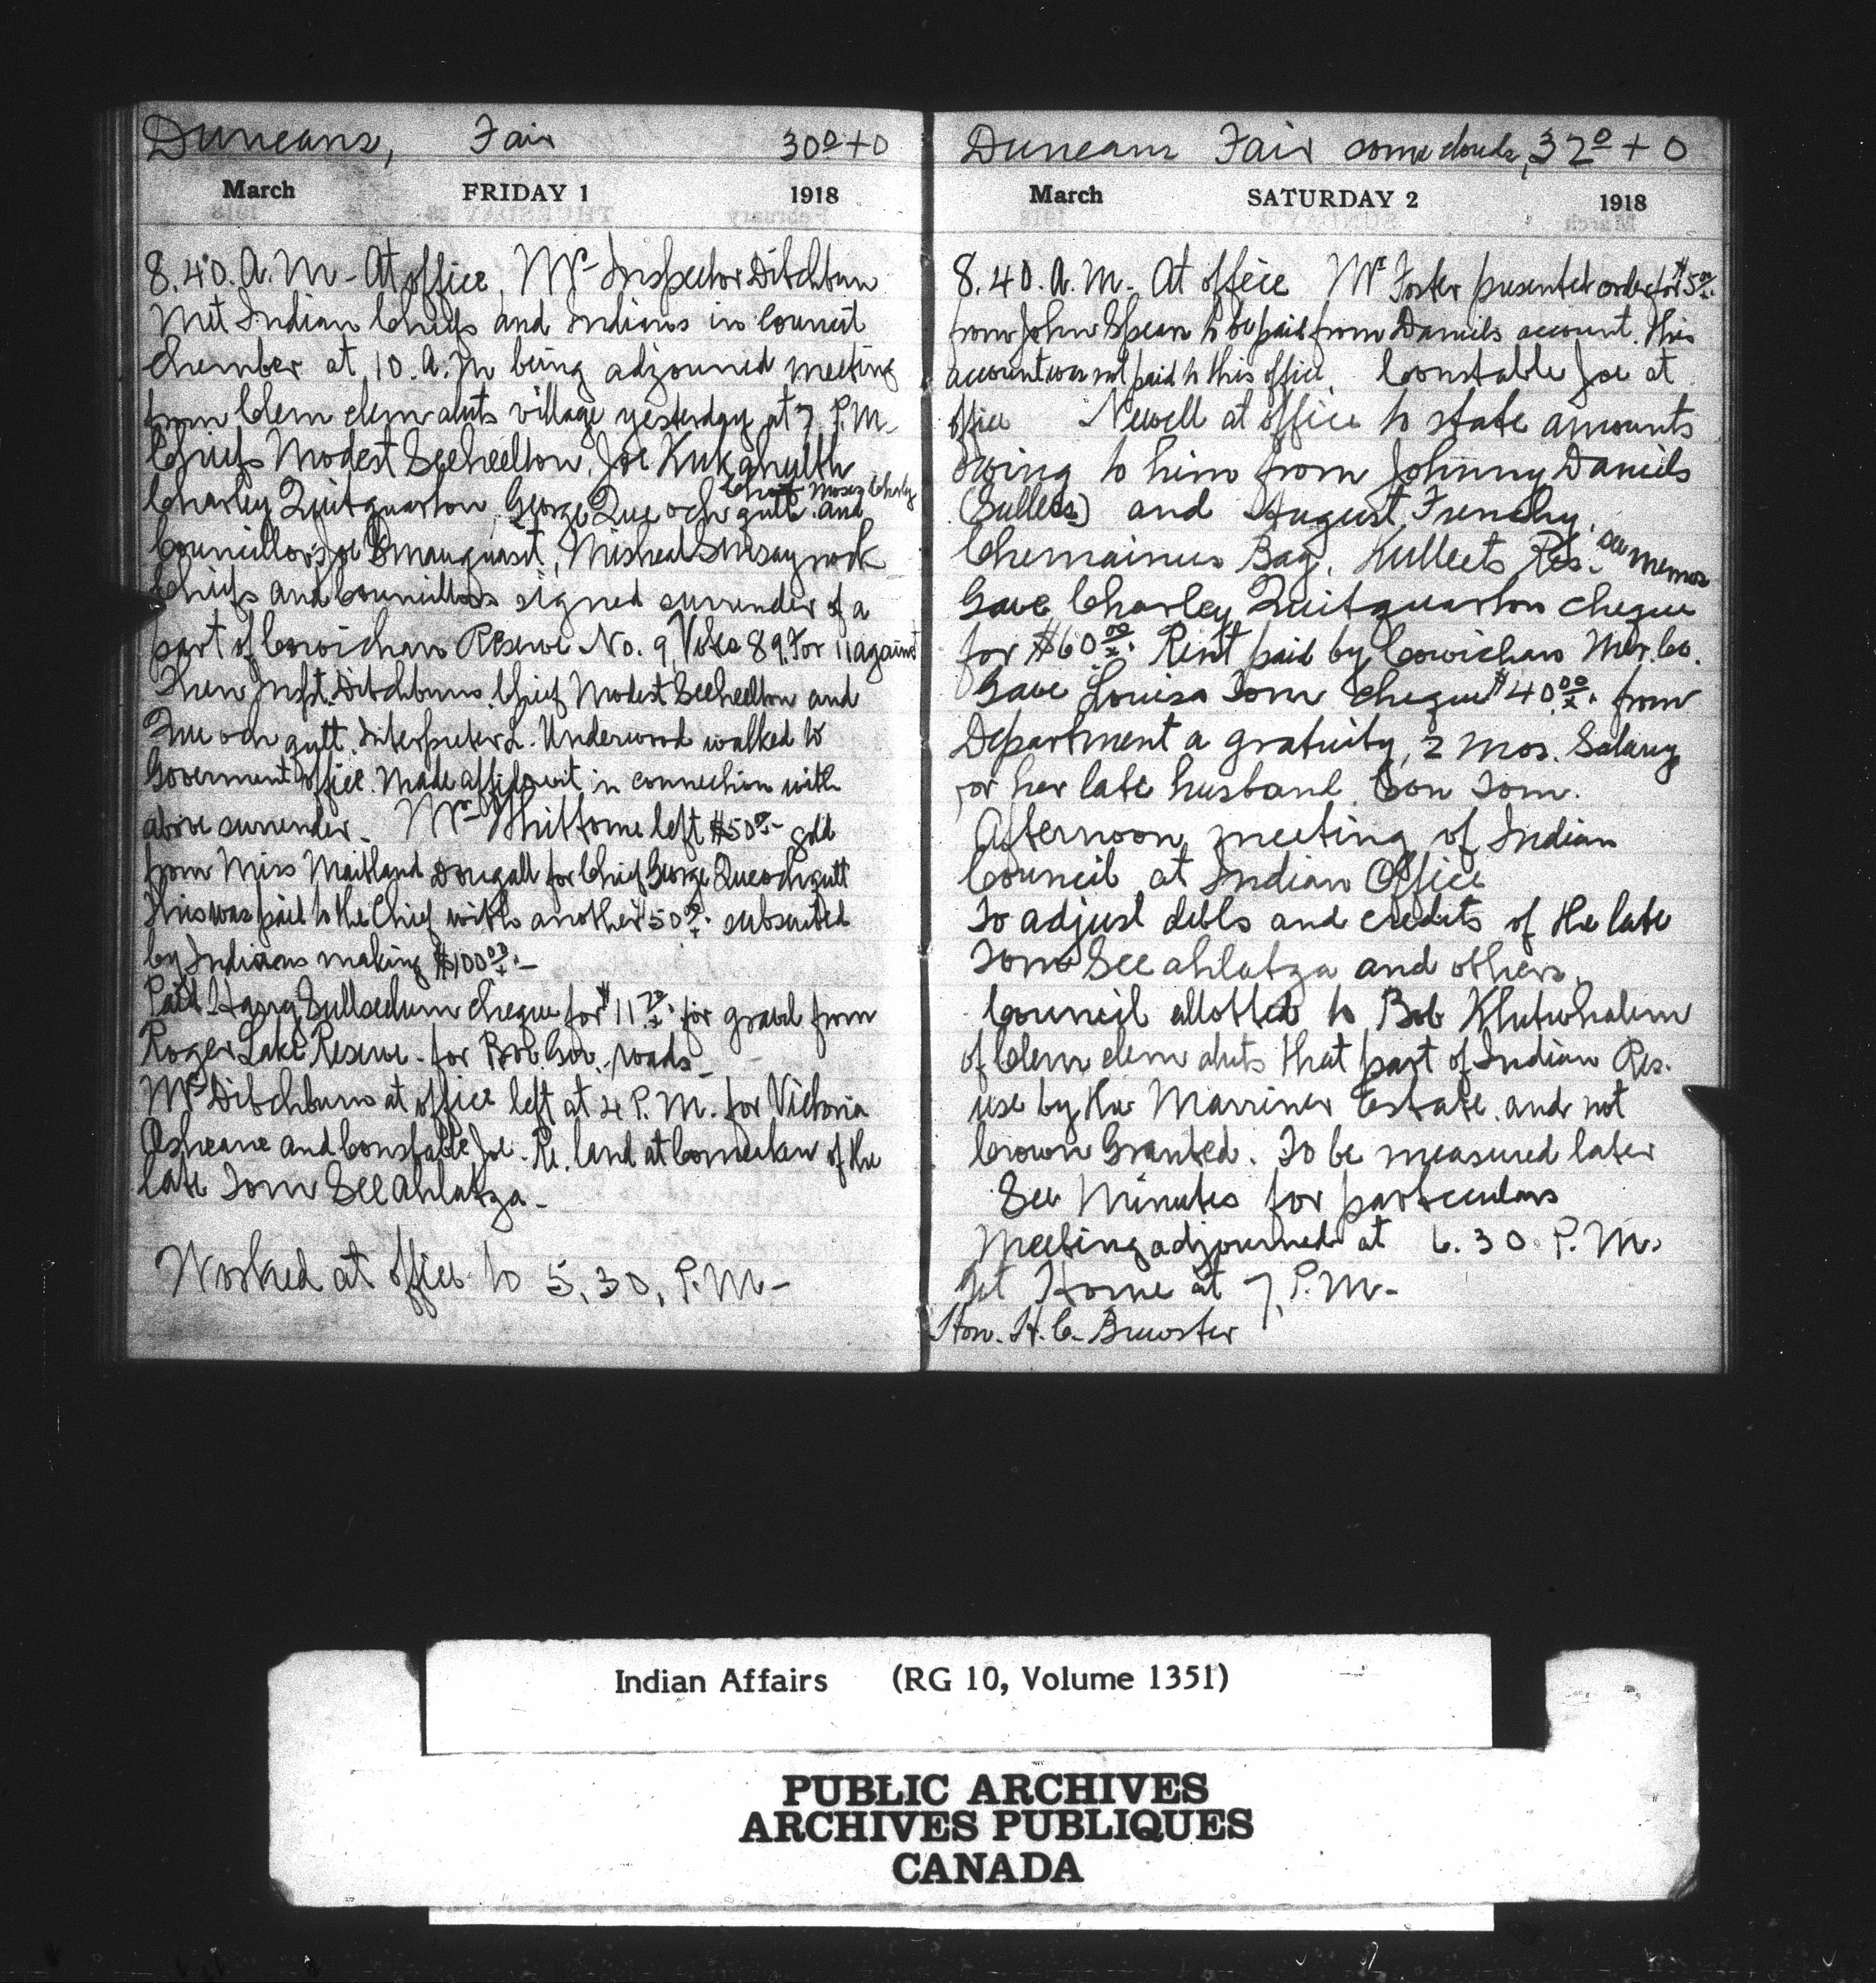 Duncans, Fair 30° + 0
March FRIDAY 1 1918
8.40. A.M - At office, Mr Inspector Ditchburn
Met Indian Chiefs and Indians in Council
chember at 10. A.M being adjourned meeting
from Clem clem aluts village yesterday at 7. P.M.
Chiefs Modest Seeheelton, Joe Kukahulth
Charley Quitquarton, George Que och gutt. and
Chief Moses Charley
Councillors Joe Misheal
Chiefs and Councillors signed surrender of a
part of Cowichan Reserve No. 9, Votes 89 For 11 against
Then Inspt. Ditchburn, Chief Modest Seeheelton and
Que och gutt. Interpreter L. Underwood walked to
Goverment office. Made affidavit in connection with
above surrender. Mr Whittome left $50.00 gold
from Miss Maitland Dougall for Chief George Queochgutt
This was paid to the Chief with another $50.00 subscribed
by Indians making $100.00 -
Paid Harry cheque for $11.70 for gravel from
Lake Reserve - for Prov. Gov. roads -
Mr Ditchburn at office left at 4 P.M. for Victoria
and Constable Joe. Re. land at Comeaken of the
late Tom See ahlatza -
Worked at office to 5.30. P.M -
Duncans Fair some clouds, 32° + 0
March SATURDAY 2 1918
8.40. A.M. At office Mr Foster presented order for $5.00
from John Spear to be paid from Daniels account. This
account was not paid to this office. Constable Joe at
office Newell at office to state amounts
owing to him from Johnny Daniels
(Sulleets) and August Frenchy,
Chemainus Bay, Kulleets Res. see memos
Gave Charley Quitquarton cheque
for $60.00. Rent paid by Cowichan Mer. Co.
Gave Louisa Tom cheque $40.00 from
Department a gratuity, 2 mos. Salary
for her late husband, Con Tom.
Afternoon meeting of Indian
Council at Indian Office
To adjust debts and credits of the late
Tom See ahlatza and others.
Council allotted to Bob Klutwhalem
of Clem clem aluts that part of Indian Res.
use by the Marriner Estate, and not
Crown Granted. To be measured later
See Minutes for particulars
Meeting adjourned at 6.30. P.M.
Got Home at 7, P.M -
Hon. H. C. Brewster
Indian Affairs (RG 10, Volume 1351)
PUBLIC ARCHIVES
ARCHIVES PUBLIQUES
CANADA